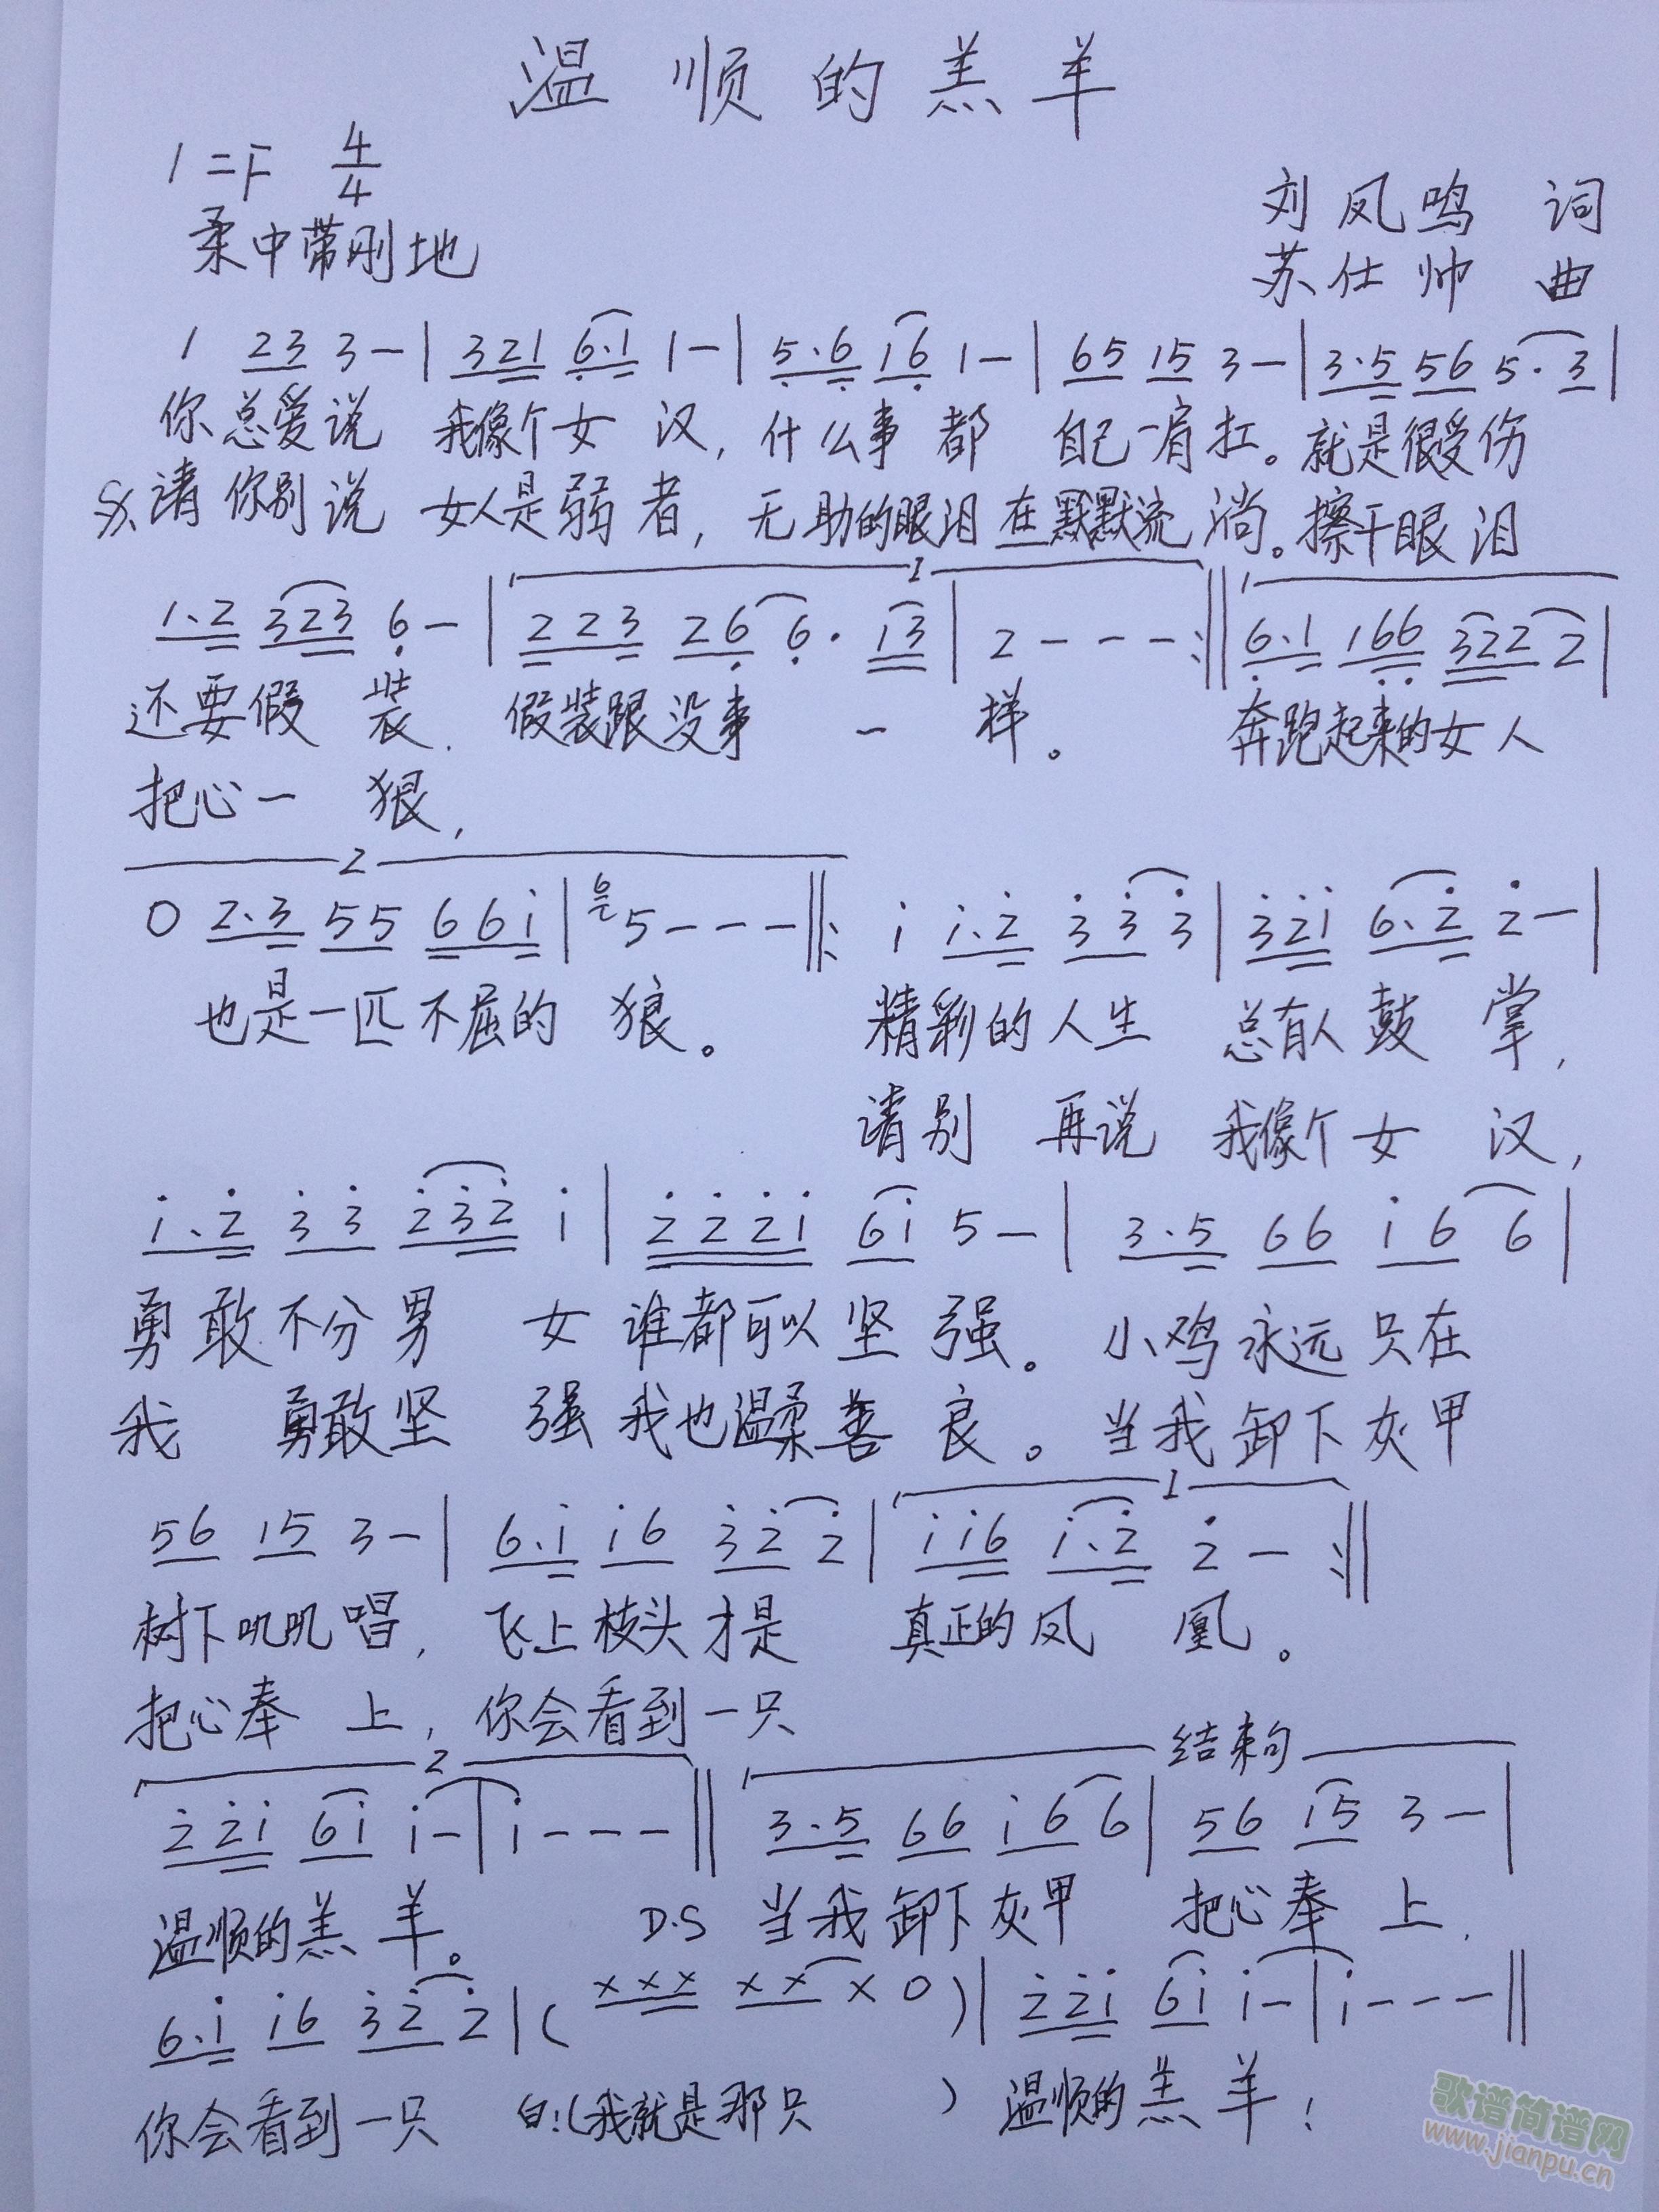 温顺的羔羊
1=F 4/4
柔中带刚地
刘凤鸣 词
苏仕帅 曲
1 23 3 - | 321 6·1 1 - | 5·6 16 1 - | 65 15 3 - | 3·5 56 5·3 |
你总爱说 我像个女汉，什么事都 自己一肩扛。就是很受伤
𝄋 请你别说 女人是弱者，无助的眼泪在默默流淌。擦干眼泪
1·2 323 6 - | 1 223 26 6· 13 | 2 - - - :‖ 6·1 166 322 2 |
还要假装. 假装跟没事一样。 奔跑起来的女人
把心一狠，
2
0 2·3 55 661 | 6 5 - - - ‖: 1 1·2 33 3 | 321 6·2 2 - |
也是一匹不屈的狼。 精彩的人生 总有人鼓掌，
请别再说 我像个女汉，
1·2 33 232 1 | 2221 61 5 - | 3·5 66 16 6 |
勇敢不分男女谁都可以坚强。小鸡永远只在
我勇敢坚强我也温柔善良。当我卸下灰甲
1
56 15 3 - | 6·1 16 32 2 | 116 1·2 2 - :‖
树下叽叽唱，飞上枝头才是 真正的凤凰。
把心奉上，你会看到一只
2 结束句
221 61 1 - | 1 - - - ‖ 3·5 66 16 6 | 56 15 3 - |
温顺的羔羊。 D.S 当我卸下灰甲 把心奉上.
6·1 16 32 2 | ( xxx xx x 0 ) | 221 61 1 - | 1 - - - ‖
你会看到一只 白:(我就是那只 ) 温顺的羔羊！
歌谱简谱网
www.jianpu.cn